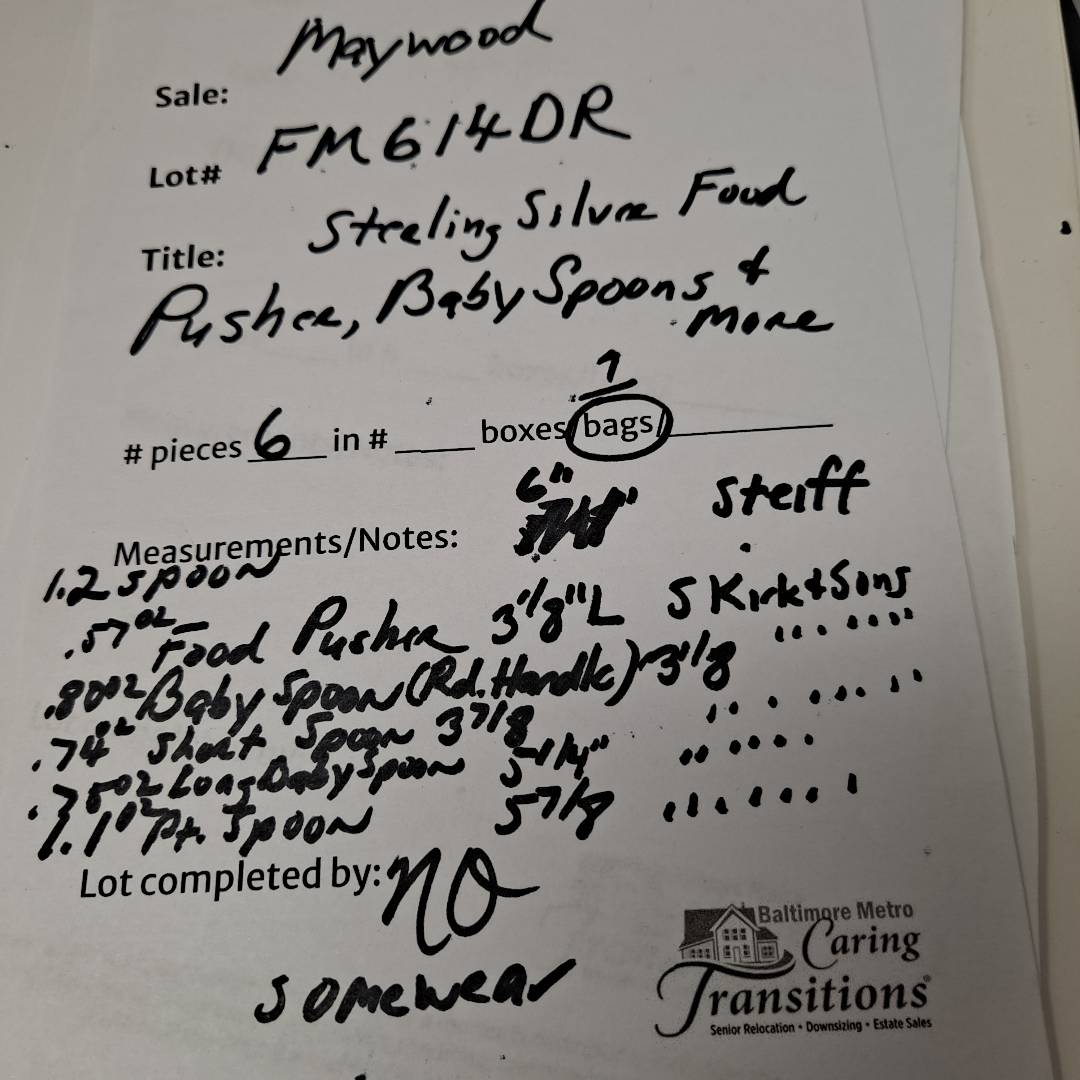 Maywood
Sale:
Lot# FM614DR
Title: Sterling Silver Food
Pusher, Baby Spoons &
more
1
# pieces 6 in # ____ boxes/bags/____
6" Steiff
Measurements/Notes:
1.2 Spoon
.57oz Food Pusher 3 1/8" L S Kirk & Sons
.80oz Baby Spoon (Rd. Handle) 3 1/8 " " " " " "
.74oz Short Spoon 3 7/8 " " " " " "
.75oz Long Baby Spoon 5 1/4" " " " " "
1.1oz Pt. Spoon 5 7/8 " " " " " "
Lot completed by: NO
Somewear
Baltimore Metro
Caring
Transitions
Senior Relocation • Downsizing • Estate Sales